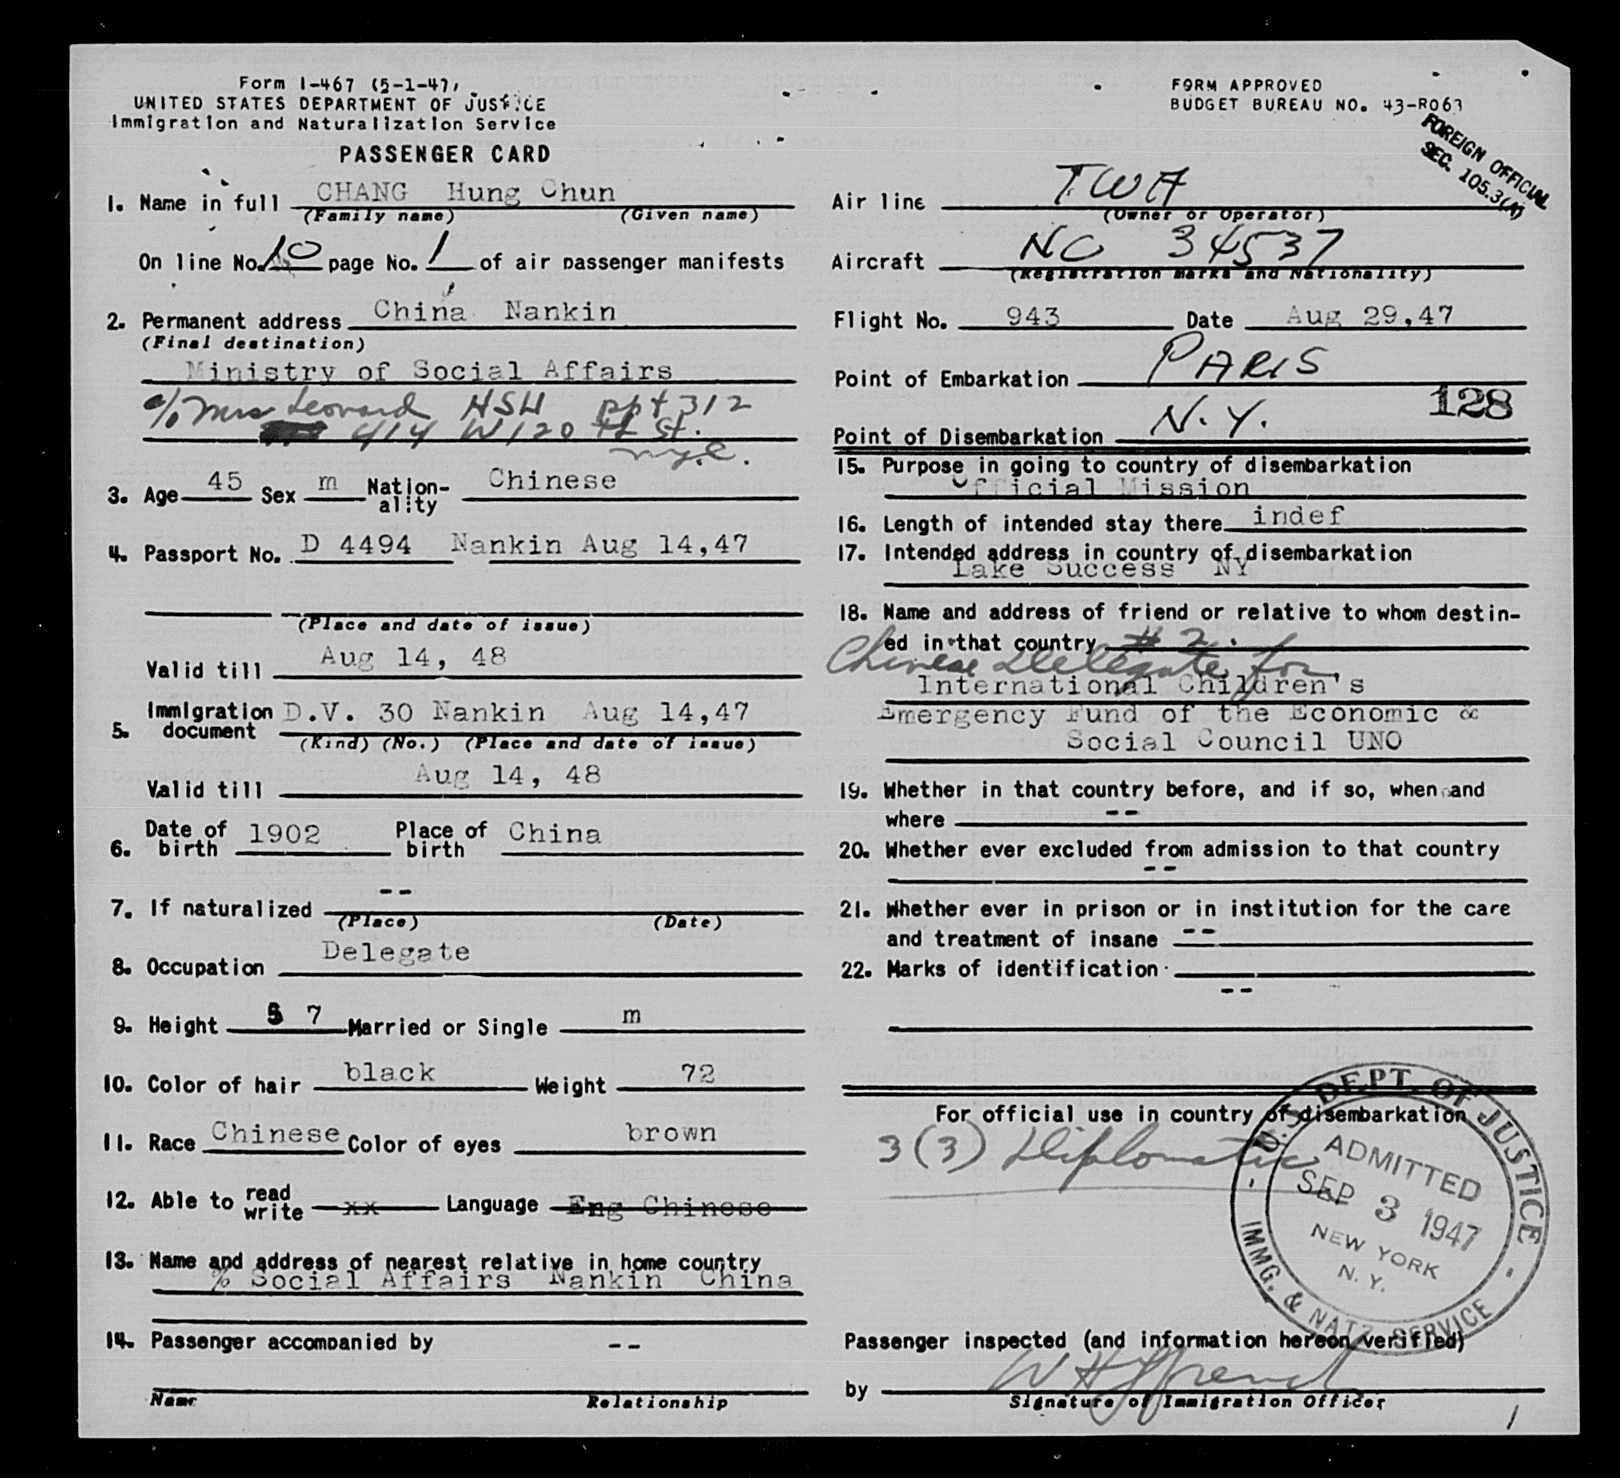 Form I-467 (5-1-47)
UNITED STATES DEPARTMENT OF JUSTICE
Immigration and Naturalization Service
PASSENGER CARD
FORM APPROVED
BUDGET BUREAU NO. 43-R063
FOREIGN OFFICIAL
SEC. 105.3(A)
1. Name in full CHANG Hung Chun
(Family name) (Given name)
On line No. 10 page No. 1 of air passenger manifests
2. Permanent address China Nankin
(Final destination)
Ministry of Social Affairs
c/o Mrs Leonard HSU apt 312
414 W 120 th St.
N.Y.C.
3. Age 45 Sex m Nation-ality Chinese
4. Passport No. D 4494 Nankin Aug 14,47
(Place and date of issue)
Valid till Aug 14, 48
5. Immigration document D.V. 30 Nankin Aug 14,47
(Kind) (No.) (Place and date of issue)
Valid till Aug 14, 48
6. Date of birth 1902 Place of birth China
7. If naturalized --
(Place) (Date)
8. Occupation Delegate
9. Height 5 7 Married or Single m
10. Color of hair black Weight 72
11. Race Chinese Color of eyes brown
12. Able to read write xx Language Eng Chinese
13. Name and address of nearest relative in home country
% Social Affairs Nankin China
14. Passenger accompanied by --
Name Relationship
Air line TWA
(Owner or Operator)
Aircraft NC 34537
(Registration marks and Nationality)
Flight No. 943 Date Aug 29,47
Point of Embarkation PARIS
128
Point of Disembarkation N.Y.
15. Purpose in going to country of disembarkation
Official Mission
16. Length of intended stay there indef
17. Intended address in country of disembarkation
Lake Success NY
18. Name and address of friend or relative to whom destin-
ed in that country # 2.
Chinese Delegate for
International Children's
Emergency Fund of the Economic &
Social Council UNO
19. Whether in that country before, and if so, when and
where --
20. Whether ever excluded from admission to that country
--
21. Whether ever in prison or in institution for the care
and treatment of insane --
22. Marks of identification
--
For official use in country of disembarkation
3 (3) Diplomatic
U.S. DEPT. OF JUSTICE
ADMITTED
SEP 3 1947
NEW YORK
N. Y.
IMMG. & NATZ. SERVICE
Passenger inspected (and information hereon verified)
by
Signature of Immigration Officer
1